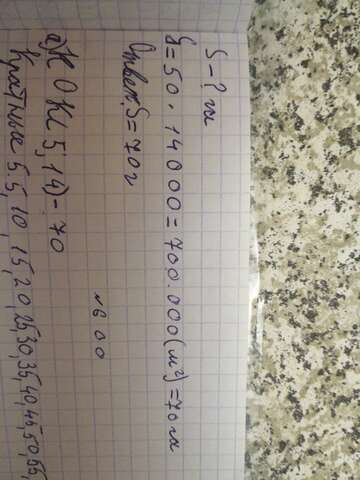 S - ? га
S = 50 · 14000 = 700.000 (м²) = 70 га
Ответ: S = 70 г
№ 600
а) НОК(5; 14) = 70
Кратные 5: 5, 10, 15, 20, 25, 30, 35, 40, 45, 50, 55,